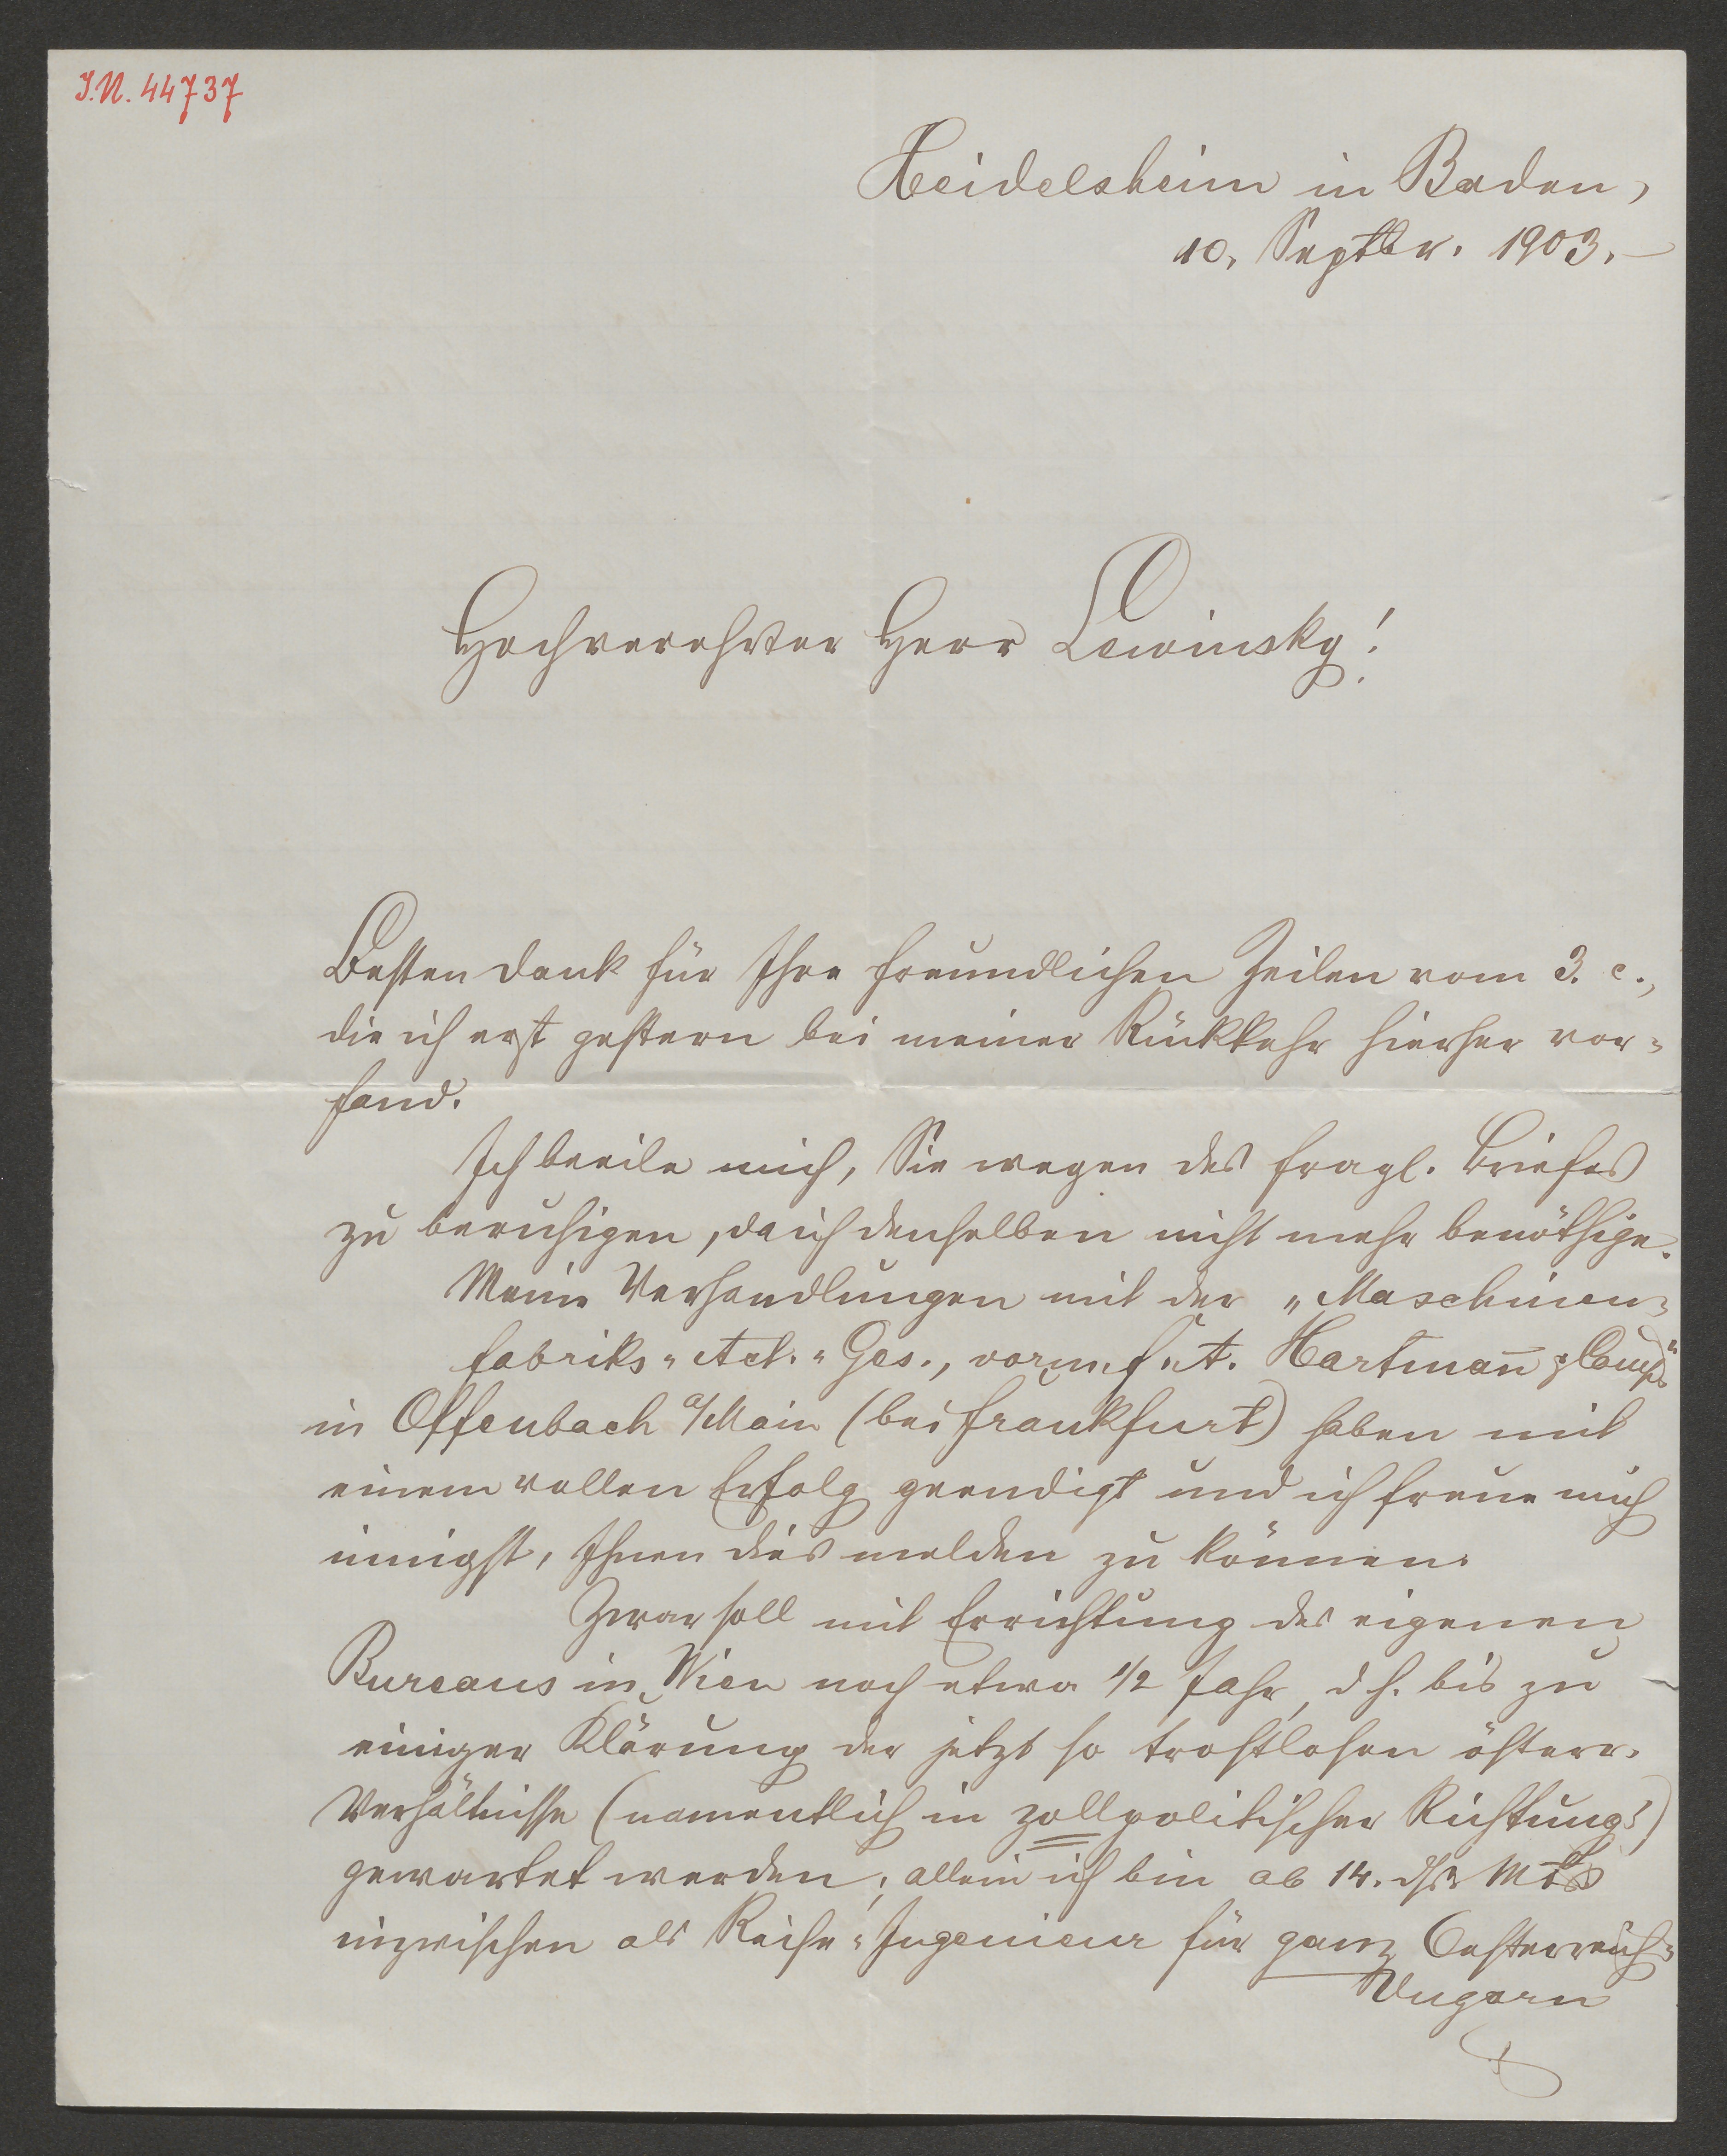 I.N. 44737
Heidelsheim in Baden,
10. Septbr. 1903.—
Hochverehrter Herr Lewinsky!
Besten Dank für Ihre freundlichen Zeilen vom 3. c.,
die ich erst gestern bei meiner Rückkehr hierher vor-
fand.
Ich beeile mich, Sie wegen des fragl. Briefes
zu beruhigen, da ich denselben nicht mehr benöthige.
Meine Verhandlungen mit der „Maschinen-
fabriks-Act.-Ges., vorm. f. A. Hartmañ & Comp."
in Offenbach a/Main (bei Frankfurt) haben mit
einem vollen Erfolg geendigt und ich freue mich
innigst, Ihnen dies melden zu können.
Zwar soll mit Errichtung des eigenen
Bureaus in Wien noch etwa 1/2 Jahr, d. h. bis zu
einiger Klärung der jetzt so trostlosen österr.
Verhältnisse (namentlich in zollpolitischer Richtung!)
gewartet werden; allein ich bin ab 14. dss Mts
inzwischen als Reise-Ingenieur für ganz Oesterreich-
Ungarn